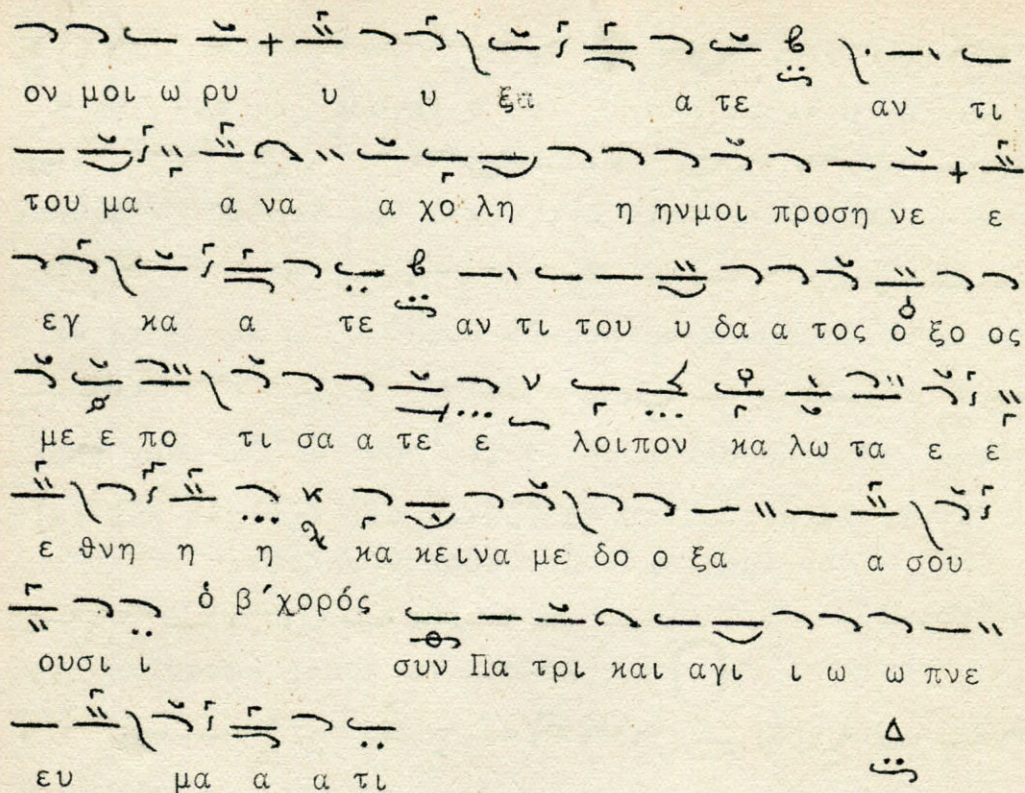 ον μοι ω ρυ υ υ ξα α τε αν τι
του μα α να α χο λη η ηνμοι προση νε ε
εγ κα α τε αν τι του υ δα α τος ο ξο ος
με ε πο τι σα α τε ε λοιπον κα λω τα ε ε
ε θνη η η κα κεινα με δο ο ξα α σου
ὁ β´χορός
ουσι ι συν Πα τρι και αγι ι ω ω πνε
ευ μα α α τι